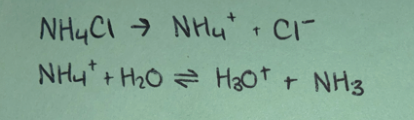 NH₄Cl → NH₄⁺ + Cl⁻
NH₄⁺ + H₂O ⇌ H₃O⁺ + NH₃